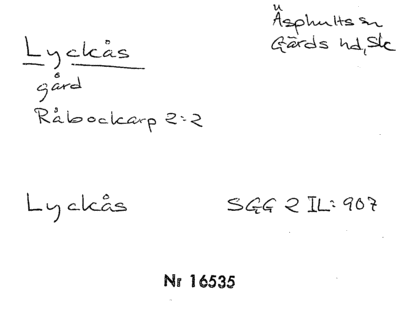 Äsphults sn
Gärds hd, Sk
Lyckås
gård
Råbockarp 2:2
Lyckås SGG 2 IL: 907
Nr 16535